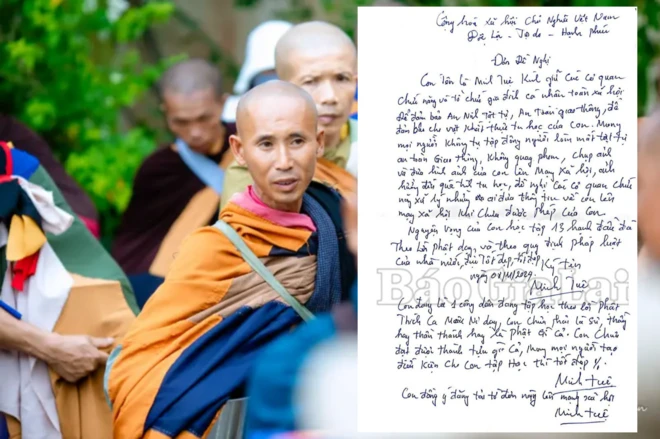 Cộng hoà xã hội Chủ Nghĩa Việt Nam
Độc Lập - Tự do - Hạnh phúc
Đơn Đề Nghị
Con Tên Là Minh Tuệ Kính gửi Các Cơ quan
chức năng và tổ chức gia đình cá nhân toàn xã hội
để đảm bảo An Ninh Tật Tự, An Toàn giao thông, để
đảm bảo cho việc khất thực tu học của Con. Mong
mọi người không tụ tập đông người làm mất tật tự
an toàn giao thông, không quay phim, chụp ảnh
và đưa hình ảnh của con lên Mạng Xã hội, ảnh
hưởng đến quá trình tu học, đề nghị Các cơ quan chức
năng xử lý những ai đưa thông tin về con lên
mạng xã hội khi Chưa được phép của Con
Nguyện vọng của Con học tập 13 hạnh đầu đà
Theo lời phật dạy, và theo quy định pháp luật
của nhà nước, điều tốt đẹp,
Ký Tên
Báo Gia Lai
Minh Tuệ
Con đang là 1 công dân đang tập học theo lời phật
Thích Ca Mâu Ni dạy, Con Chưa phải là Sư, thầy
hay thần thánh hay là Phật gì cả. Con Chưa
đạt được thành tựu gì Cả, Mong mọi người tạo
điều Kiện Cho Con tập Học thì tốt đẹp
Minh Tuệ
Con đồng ý đăng tải tờ đơn này lên mạng xã hội
Minh Tuệ